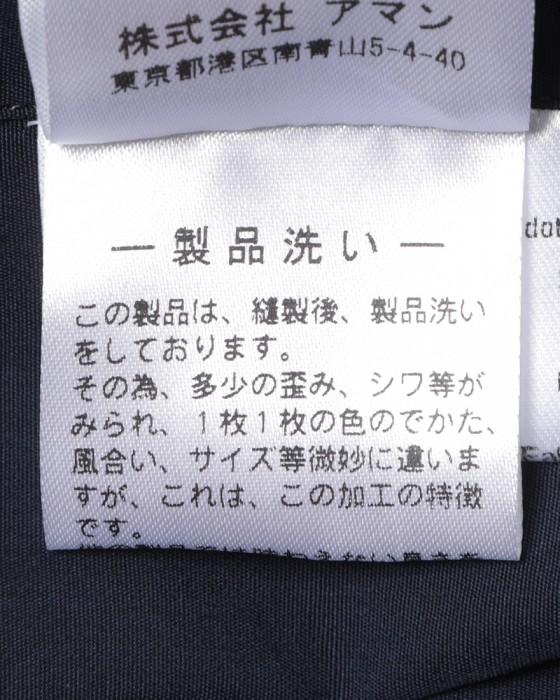 株式会社 アマン
東京都港区南青山5-4-40
― 製品洗い ―
この製品は、縫製後、製品洗い
をしております。
その為、多少の歪み、シワ等が
みられ、1枚1枚の色のでかた、
風合い、サイズ等微妙に違いま
すが、これは、この加工の特徴
です。
dot